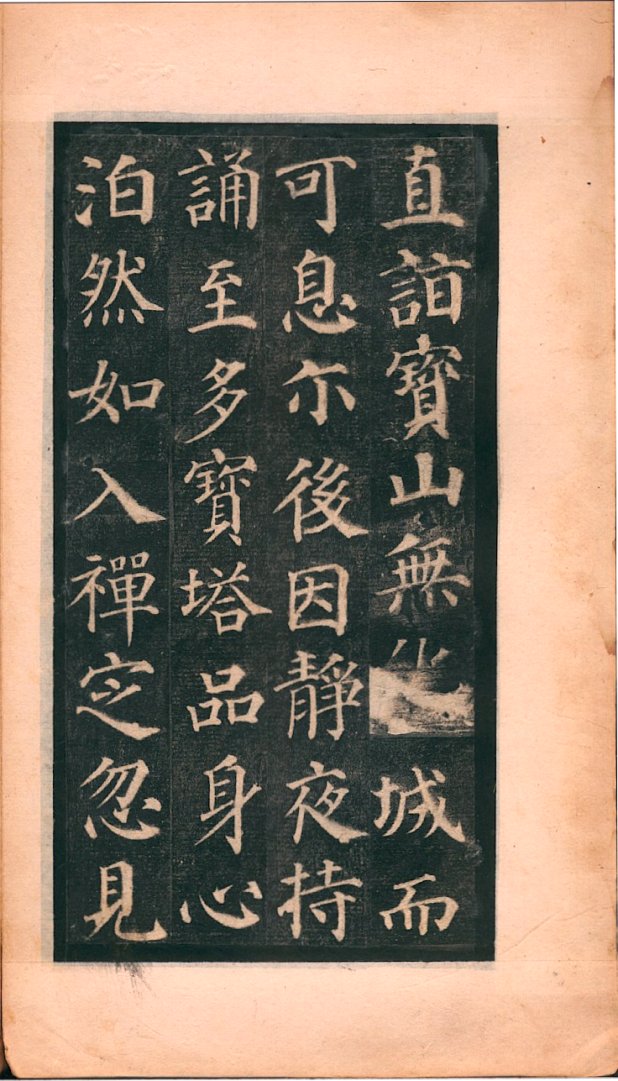 直詣寶山無化城而
可息尒後因靜夜持
誦至多寶塔品身心
泊然如入禪定忽見